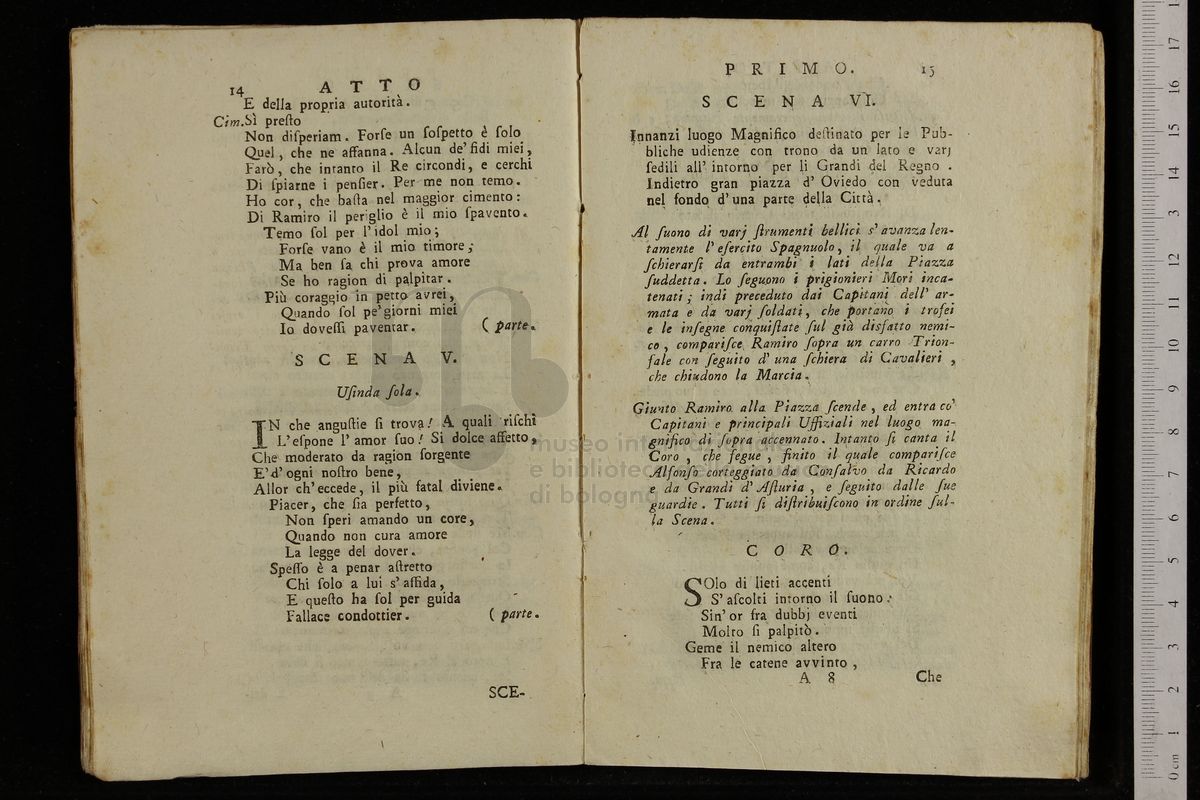 14 ATTO
E della propria autorità.
Cim. Sì preſto
Non diſperiam. Forſe un ſoſpetto è ſolo
Quel, che ne affanna. Alcun de' fidi miei,
Farò, che intanto il Re circondi, e cerchi
Di ſpiarne i penſier. Per me non temo.
Ho cor, che baſta nel maggior cimento:
Di Ramiro il periglio è il mio ſpavento.
Temo ſol per l'idol mio;
Forſe vano è il mio timore;
Ma ben ſa chi prova amore
Se ho ragion di palpitar.
Più coraggio in petto avrei,
Quando ſol pe' giorni miei
Io doveſſi paventar. ( parte.
SCENA V.
Uſinda ſola.
IN che anguſtie ſi trova! A quali riſchi
L'eſpone l'amor ſuo! Si dolce affetto,
Che moderato da ragion ſorgente
E' d'ogni noſtro bene,
Allor ch'eccede, il più fatal diviene.
Piacer, che ſia perfetto,
Non ſperi amando un core,
Quando non cura amore
La legge del dover.
Speſſo è a penar aſtretto
Chi ſolo a lui s'affida,
E queſto ha ſol per guida
Fallace condottier. ( parte.
SCE-
PRIMO. 15
SCENA VI.
Innanzi luogo Magnifico deſtinato per le Pub-
bliche udienze con trono da un lato e varj
ſedili all' intorno per li Grandi del Regno.
Indietro gran piazza d' Oviedo con veduta
nel fondo d'una parte della Città.
Al ſuono di varj ſtrumenti bellici s' avanza len-
tamente l' eſercito Spagnuolo, il quale va a
ſchierarſi da entrambi i lati della Piazza
ſuddetta. Lo ſeguono i prigionieri Mori inca-
tenati; indi preceduto dai Capitani dell' ar-
mata e da varj ſoldati, che portano i trofei
e le inſegne conquiſtate ſul già disfatto nemi-
co, compariſce Ramiro ſopra un carro Trion-
fale con ſeguito d' una ſchiera di Cavalieri,
che chiudono la Marcia.
Giunto Ramiro alla Piazza ſcende, ed entra co'
Capitani e principali Uffiziali nel luogo ma-
gnifico di ſopra accennato. Intanto ſi canta il
Coro, che ſegue, finito il quale compariſce
Alfonſo corteggiato da Conſalvo da Ricardo
e da Grandi d' Aſturia, e ſeguito dalle ſue
guardie. Tutti ſi diſtribuiſcono in ordine ſul-
la Scena.
CORO.
SOlo di lieti accenti
S' aſcolti intorno il ſuono:
Sin' or fra dubbj eventi
Molto ſi palpitò.
Geme il nemico altero
Fra le catene avvinto,
A 8 Che
museo
e biblioteca
di bologna
0 cm 1 2 3 4 5 6 7 8 9 10 11 12 13 14 15 16 17